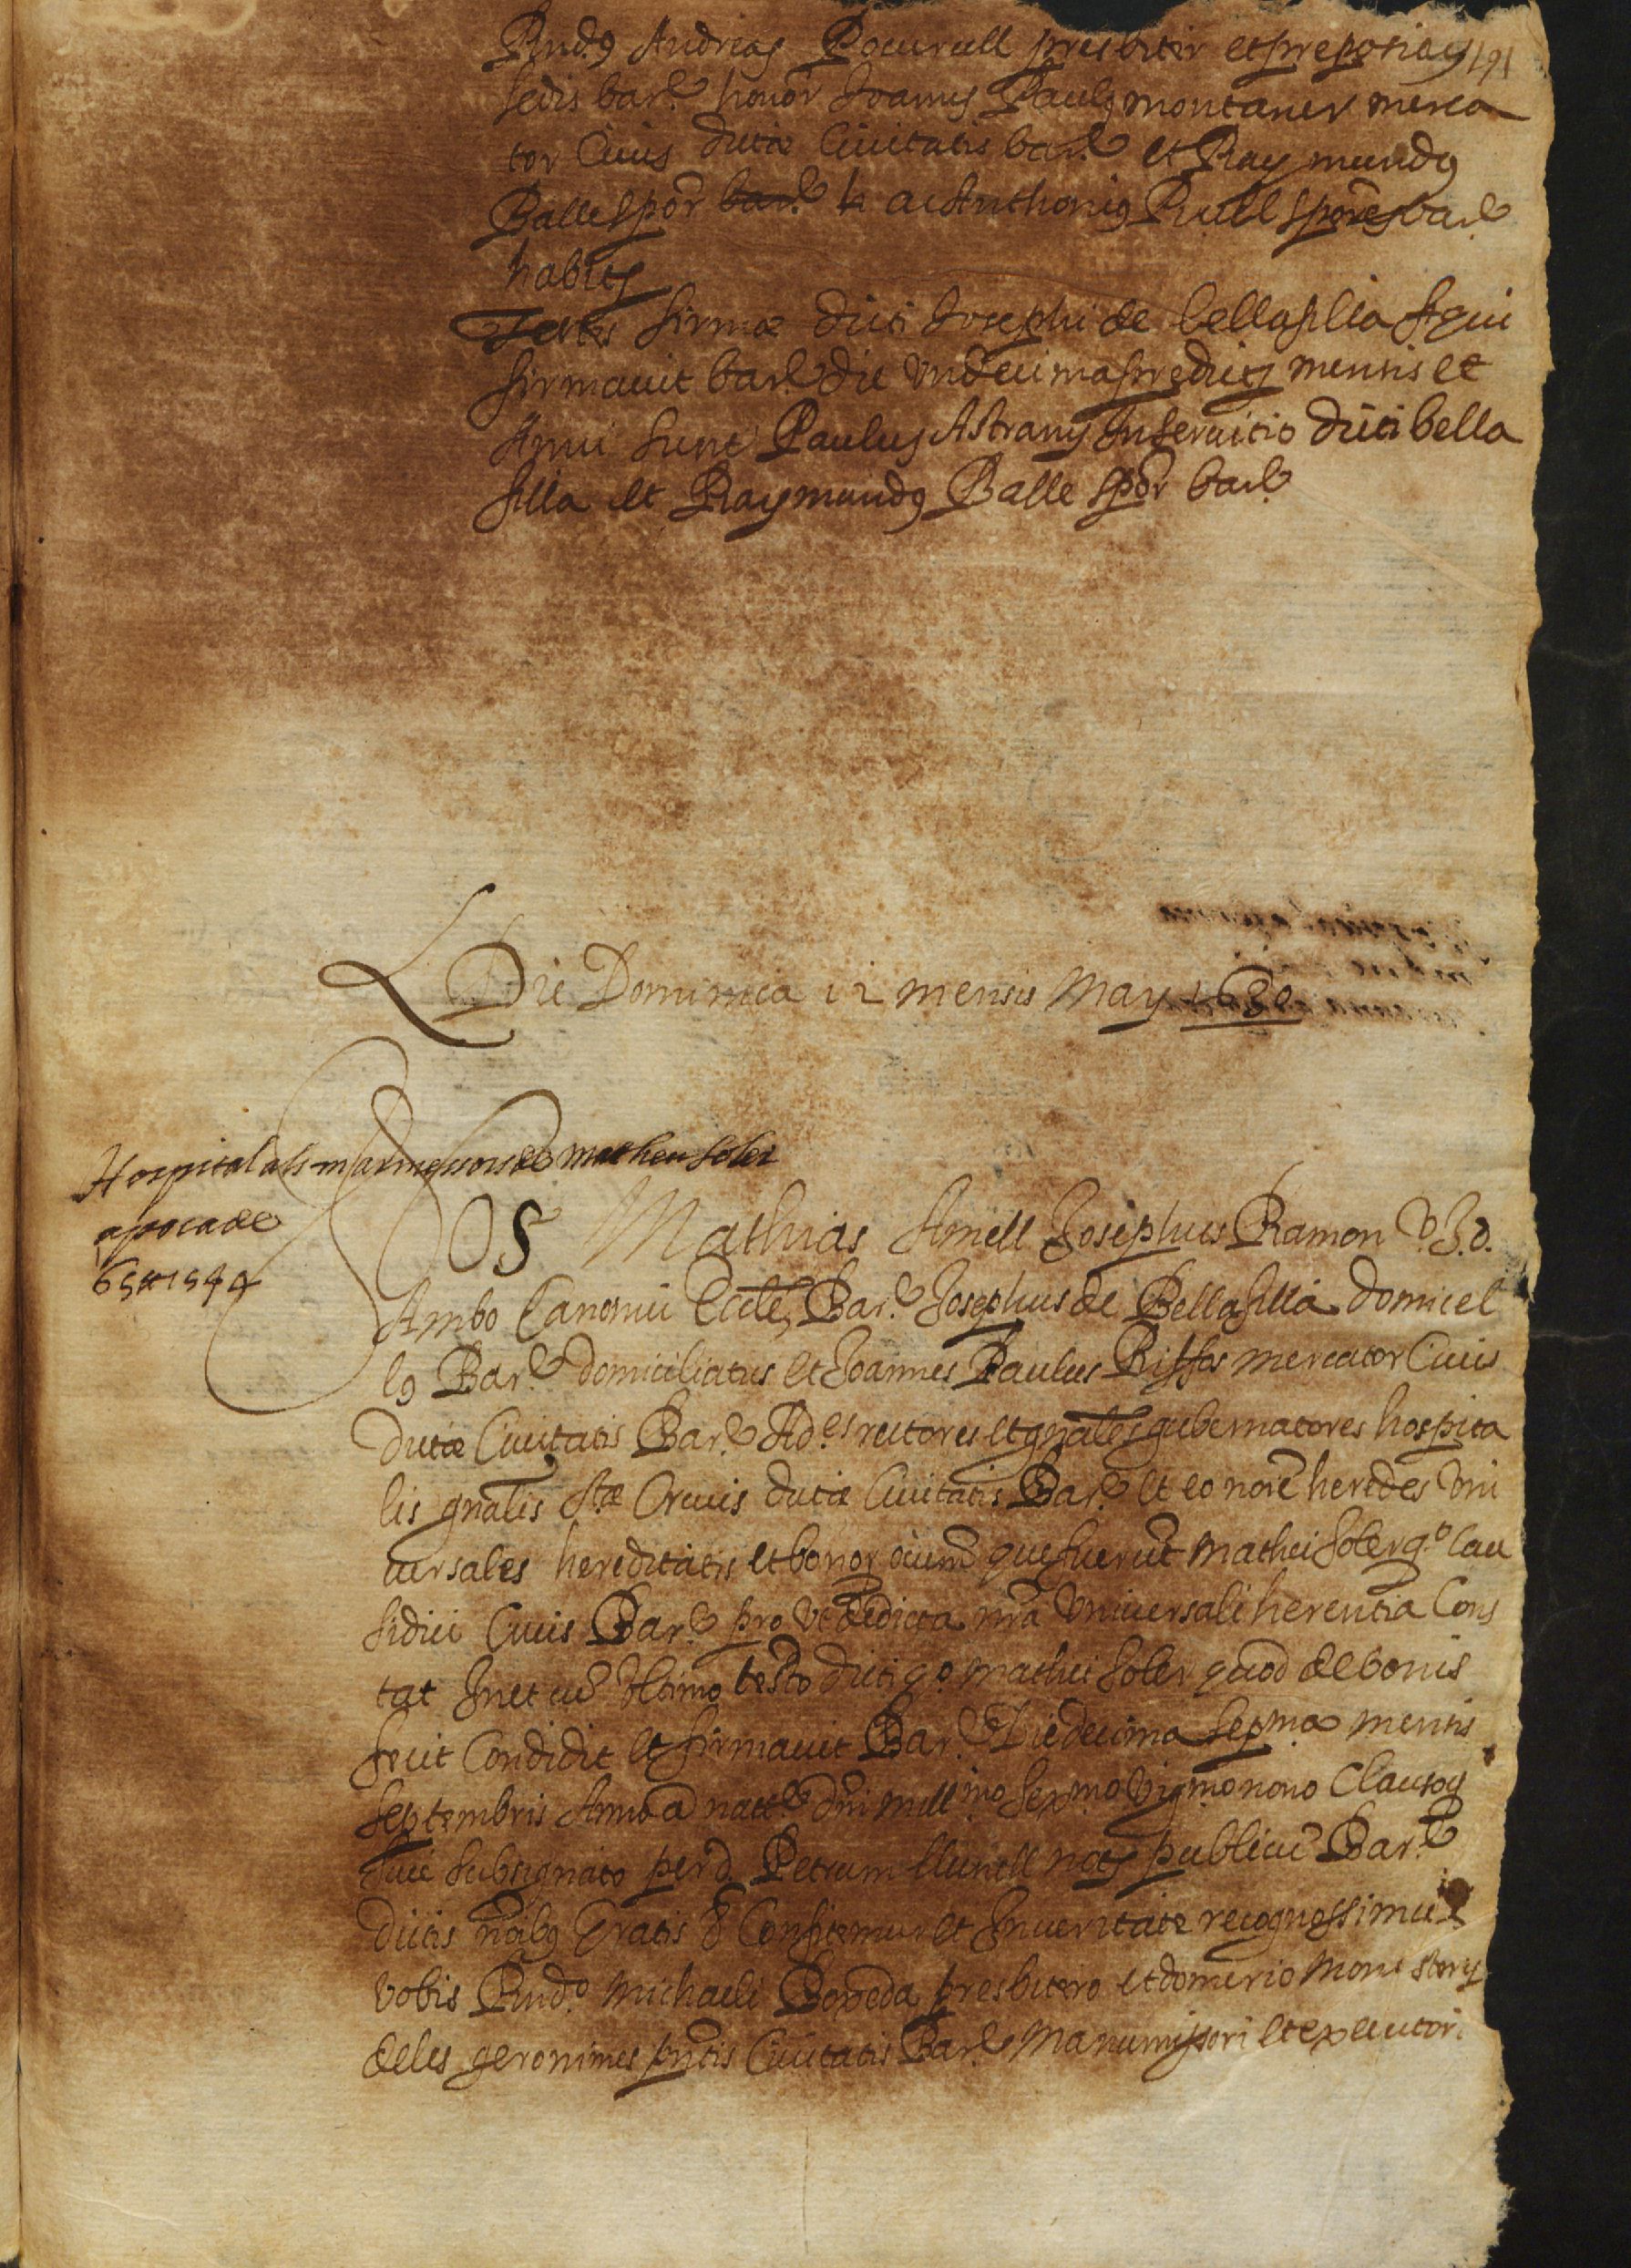 Rnd.9 Andreas Pocurull presbiter et prepositus 191
sedis bar.e honor Joannes Paul9 montaner merca
tor Civis dictæ Civitatis bar.e et Raymund9
Balle spōr bar.e h ac Anthoni9 Rull spōres bar.e
habits
Testes firmæ dicti Josephi de bellafilla qui
firmavit bar.e die Undecima predictis mensis et
Anni sunt Paulus Astrany In servitio dicti bella
filla et Raymund9 Balle spōr bar.e
Die Dominica 12 mensis May 1630
Hospital als marmessors de Matheu soler
apoca de
65 ll 15 s 4
OS Mathias Amell Josephus Ramon V.J.d.
Ambo Canonici Eccle, Bar.e Josephus de Bellafilla domicel
l9 Bar.e domiciliatus et Joannes Paulus Riffos mercator Civis
dictæ Civitatis Bar.e Ad.es rectores et gnāles gubernatores hospita
lis gnālis Stæ Crucis dictæ Civitatis Bar.e et eo noīe heredes Uni
versales hereditatis et bonor oīum que fuerūt Mathei Soler q.o Cau
sidici Civis Bar.e pro Ut de dicta nrā Universali herentia Cons
tat In et cū Ultimo testo dicti qo Mathei Soler quod de bonis
fecit Condidit et firmavit Bar.e Die decima sepma mensis
septembris Anno a natte dnī millmo sexmo Vigmo nono Clauso q
sive subsignato per d. Petrum llunell nots publicū Bar.e
dictis noībq Gratis & Confitemur et In veritate recognossimus
Vobis Rnd.o Michaeli Boxeda presbitero et domerio monestery
de les geronimes pntis Civitatis Bar.e Manumissori et executori